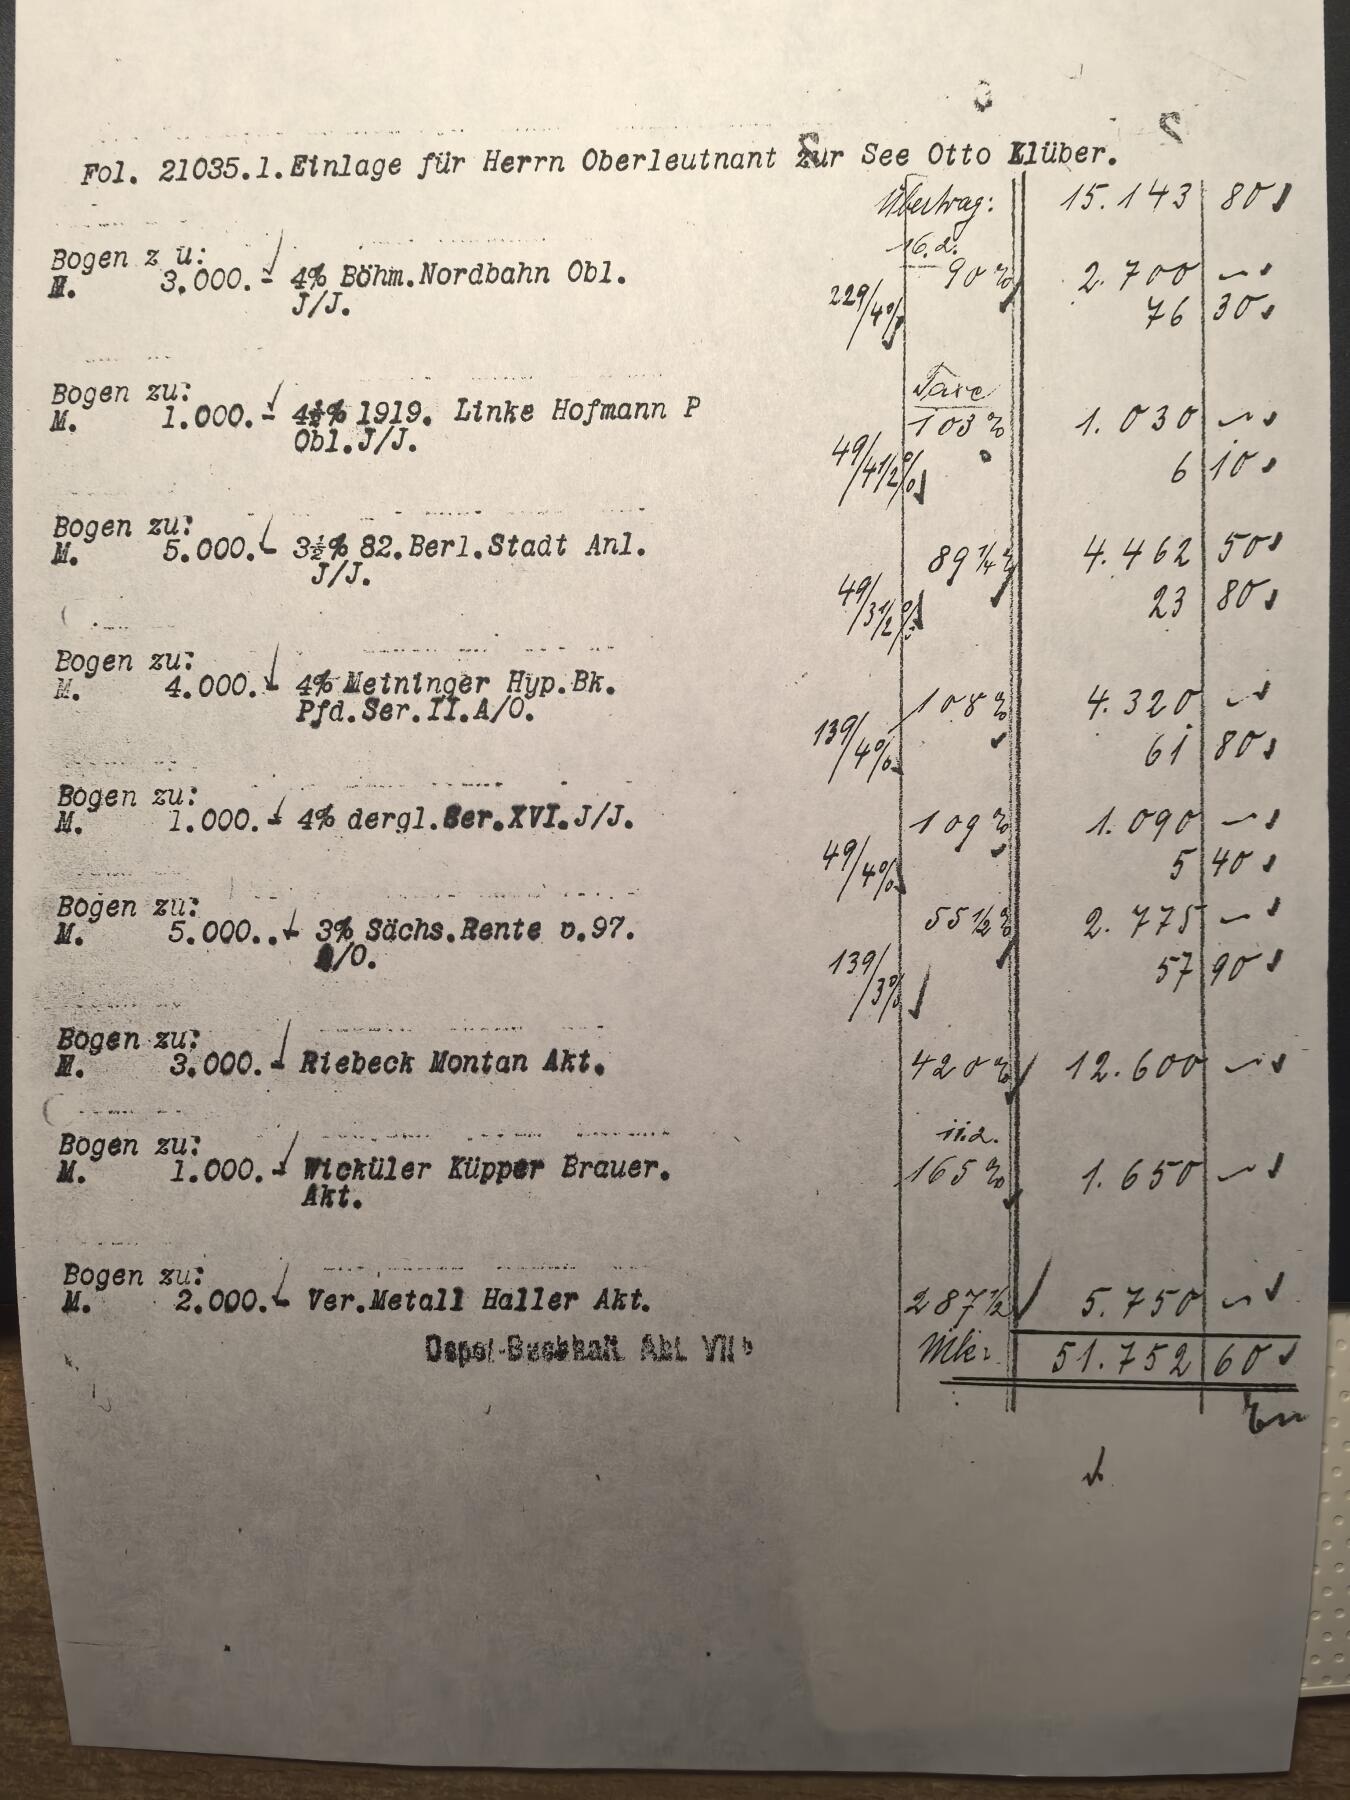 Fol. 21035.1. Einlage für Herrn Oberleutnant zur See Otto Klüber.
Übertrag: 15.143 80
Bogen z u: 16.2.
M. 3.000.- 4% Böhm. Nordbahn Obl. 90% 2.700 —
J/J. 229/4% 76 30
Bogen zu: Taxe
M. 1.000.- 4½% 1919. Linke Hofmann P 103% 1.030 —
Obl. J/J. 49/4 1/2% 6 10
Bogen zu:
M. 5.000.- 3½% 82. Berl. Stadt Anl. 89 1/4% 4.462 50
J/J. 49/3 1/2% 23 80
Bogen zu:
M. 4.000.- 4% Meininger Hyp. Bk. 108% 4.320 —
Pfd. Ser. II. A/O. 139/4% 61 80
Bogen zu:
M. 1.000.- 4% dergl. Ser. XVI. J/J. 109% 1.090 —
49/4% 5 40
Bogen zu:
M. 5.000..- 3% Sächs. Rente v. 97. 55 1/2% 2.775 —
A/O. 139/3% 57 90
Bogen zu:
M. 3.000.- Riebeck Montan Akt. 420% 12.600 —
Bogen zu: 11.2.
M. 1.000.- Wicküler Küpper Brauer. 165% 1.650 —
Akt.
Bogen zu:
M. 2.000.- Ver. Metall Haller Akt. 287 1/2 5.750 —
Depot-Buchhalt. Abt. VII b 51.752 60